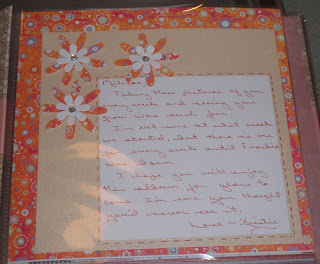 Taking these pictures of you
every week and seeing you
grow was such fun.
I'm not sure what week
we started, but there is one
for every week until Frankie
was born.
I hope you will enjoy
this album for years to
come. I'm sure you thought
you'd never see it.
Love ~ Kristie